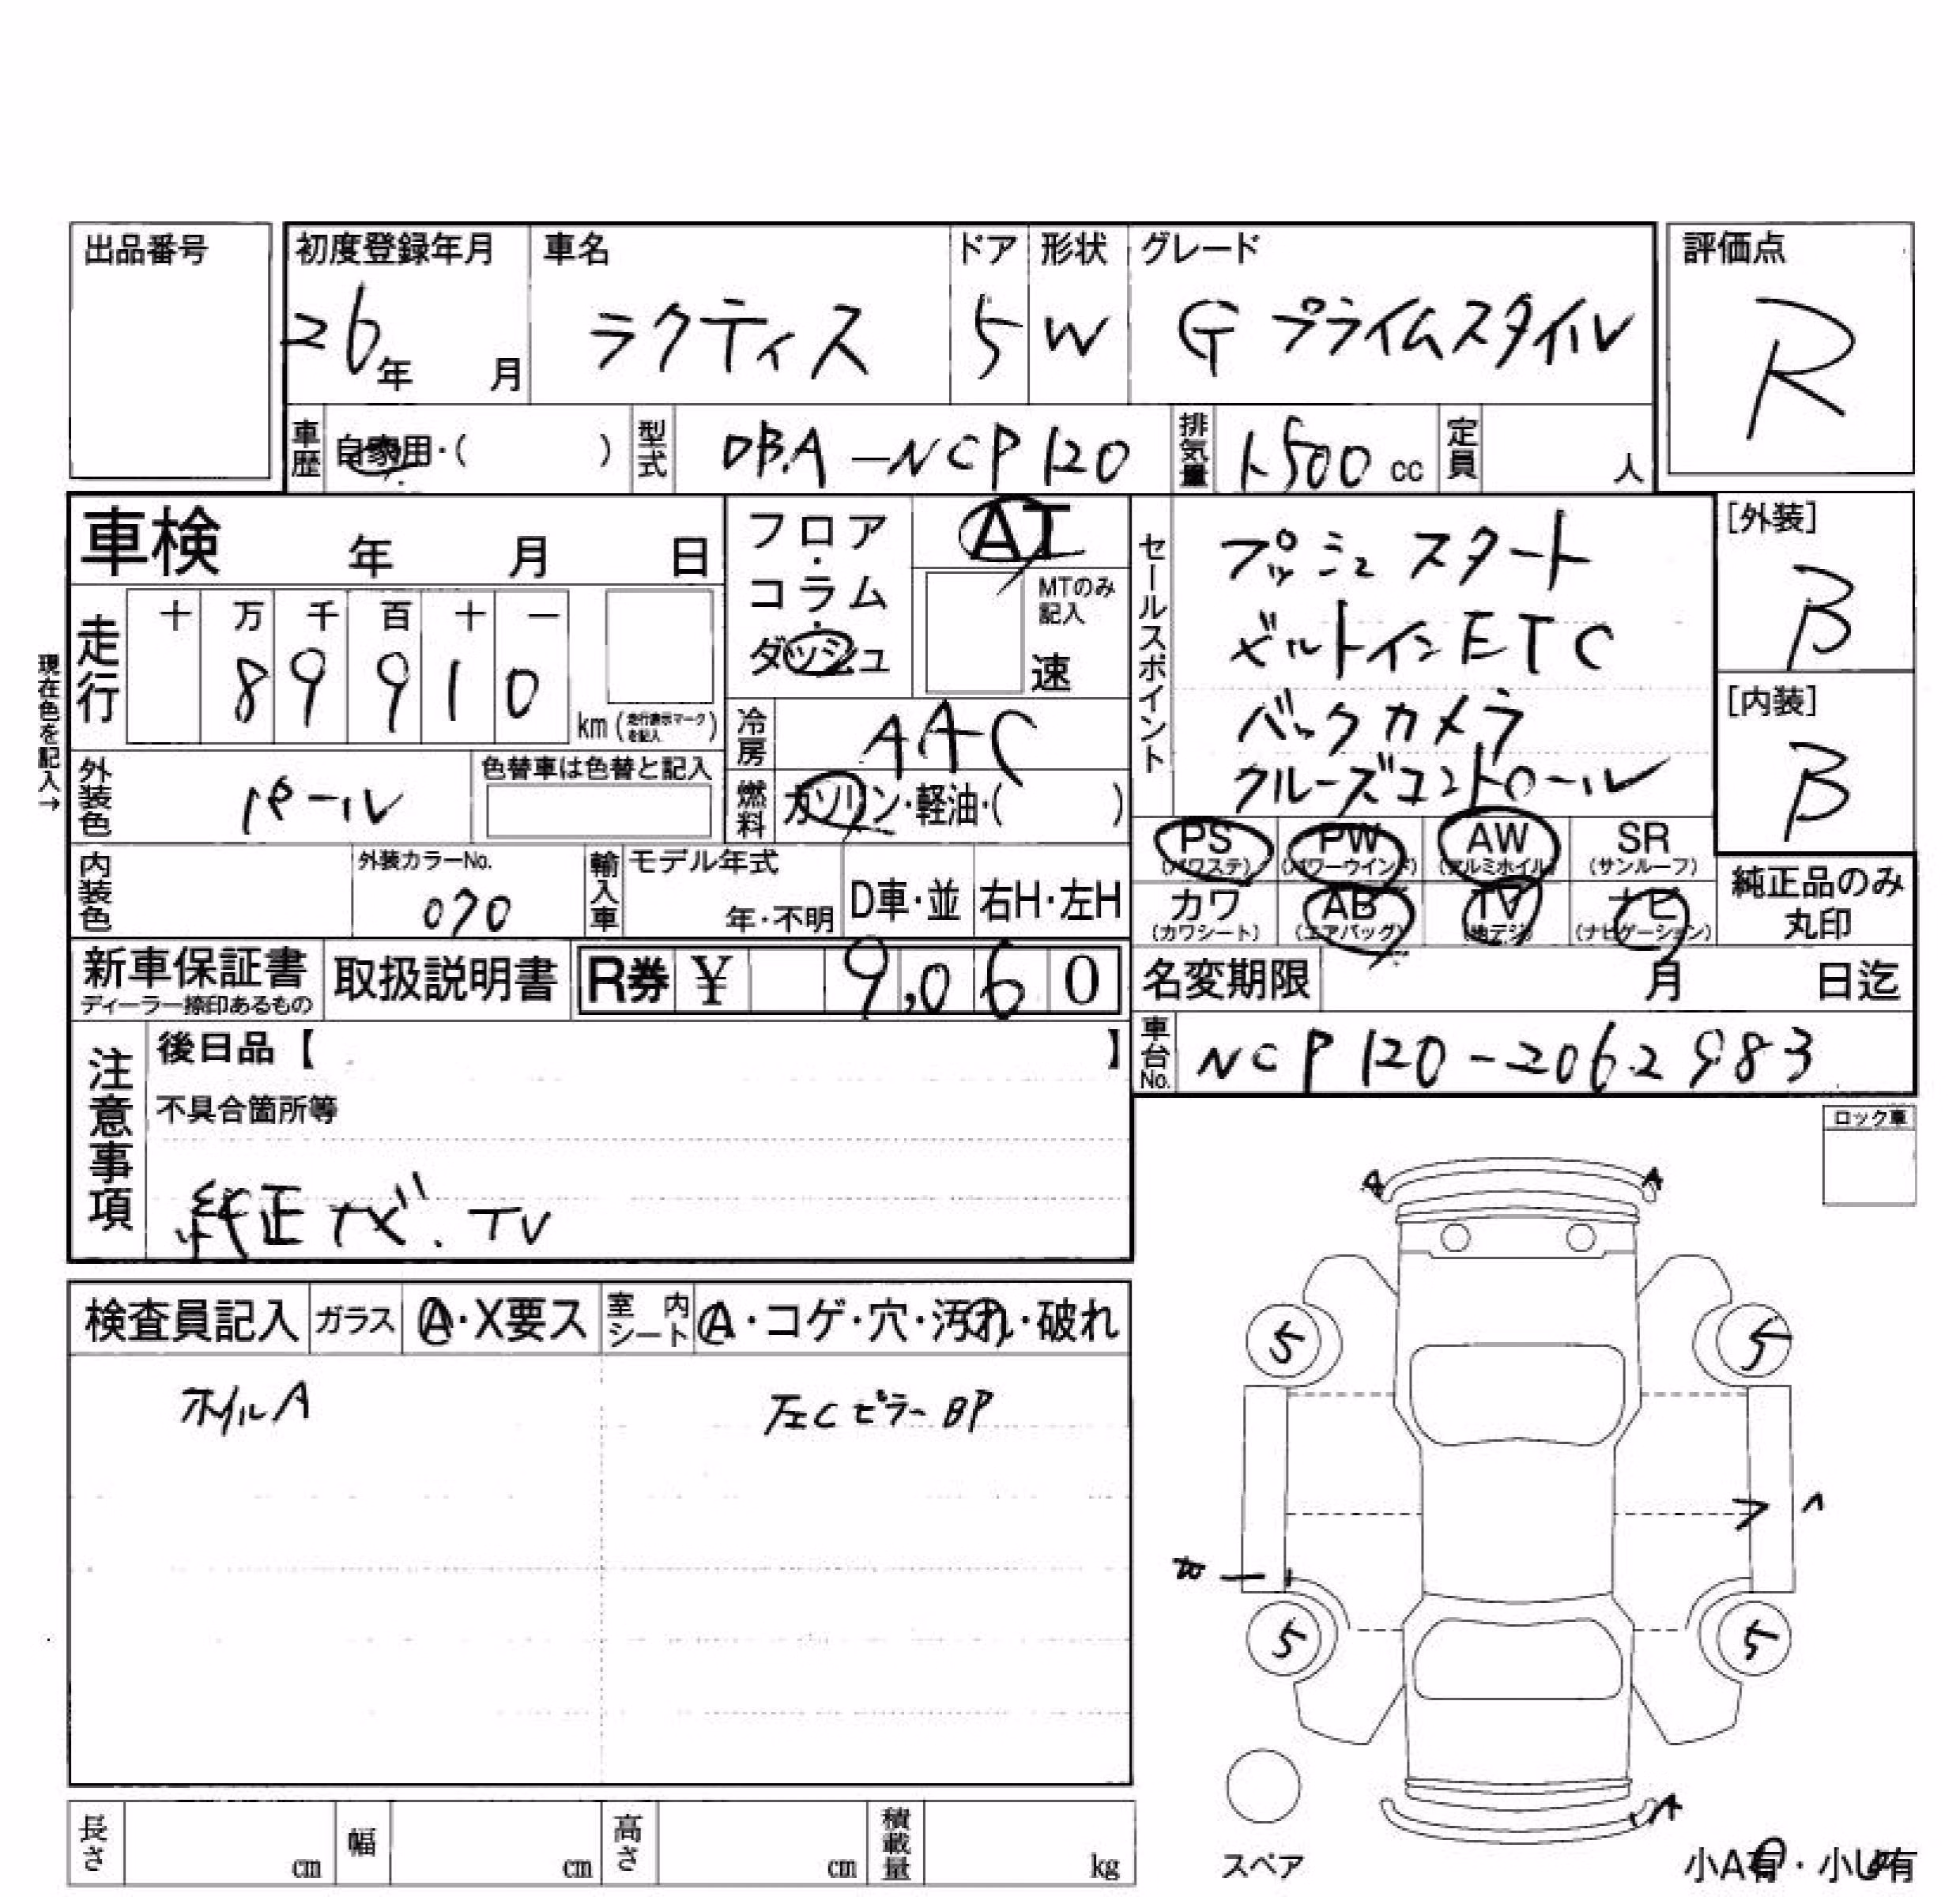 出品番号
初度登録年月 車名 ドア 形状 グレード 評価点
26年 月 ラクティス 5 W G プライムスタイル R
車歴 自家用・( ) 型式 DBA-NCP120 排気量 1500cc 定員 人
車検 年 月 日
フロア・コラム・ダッシュ AT
MTのみ記入
速
セールスポイント
プッシュスタート
ビルトインETC
バックカメラ
クルーズコントロール
[外装]
B
[内装]
B
現在色を記入→
走行 十 万 千 百 十 一
8 9 9 1 0 km (走行表示マークを記入)
冷房 AAC
外装色 パール 色替車は色替と記入
燃料 ガソリン・軽油・( )
PS (パワステ) PW (パワーウインド) AW (アルミホイル) SR (サンルーフ)
カワ (カワシート) AB (エアバッグ) TV (地デジ) ナビ (ナビゲーション)
純正品のみ丸印
内装色 外装カラーNo. 070 輸入車 モデル年式 年・不明 D車・並 右H・左H
新車保証書 ディーラー捺印あるもの 取扱説明書 R券 ¥ 9,060
名変期限 月 日迄
車台No. NCP120-2062983
注意事項
後日品【 】
不具合箇所等
純正ナビ.TV
ロック車
検査員記入 ガラス A・X要ス 室内シート A・コゲ・穴・汚れ・破れ
ホイルA 左CピラーBP
A A
5 5
5 5
A
スペア
小A有・小U有
長さ cm 幅 cm 高さ cm 積載量 kg